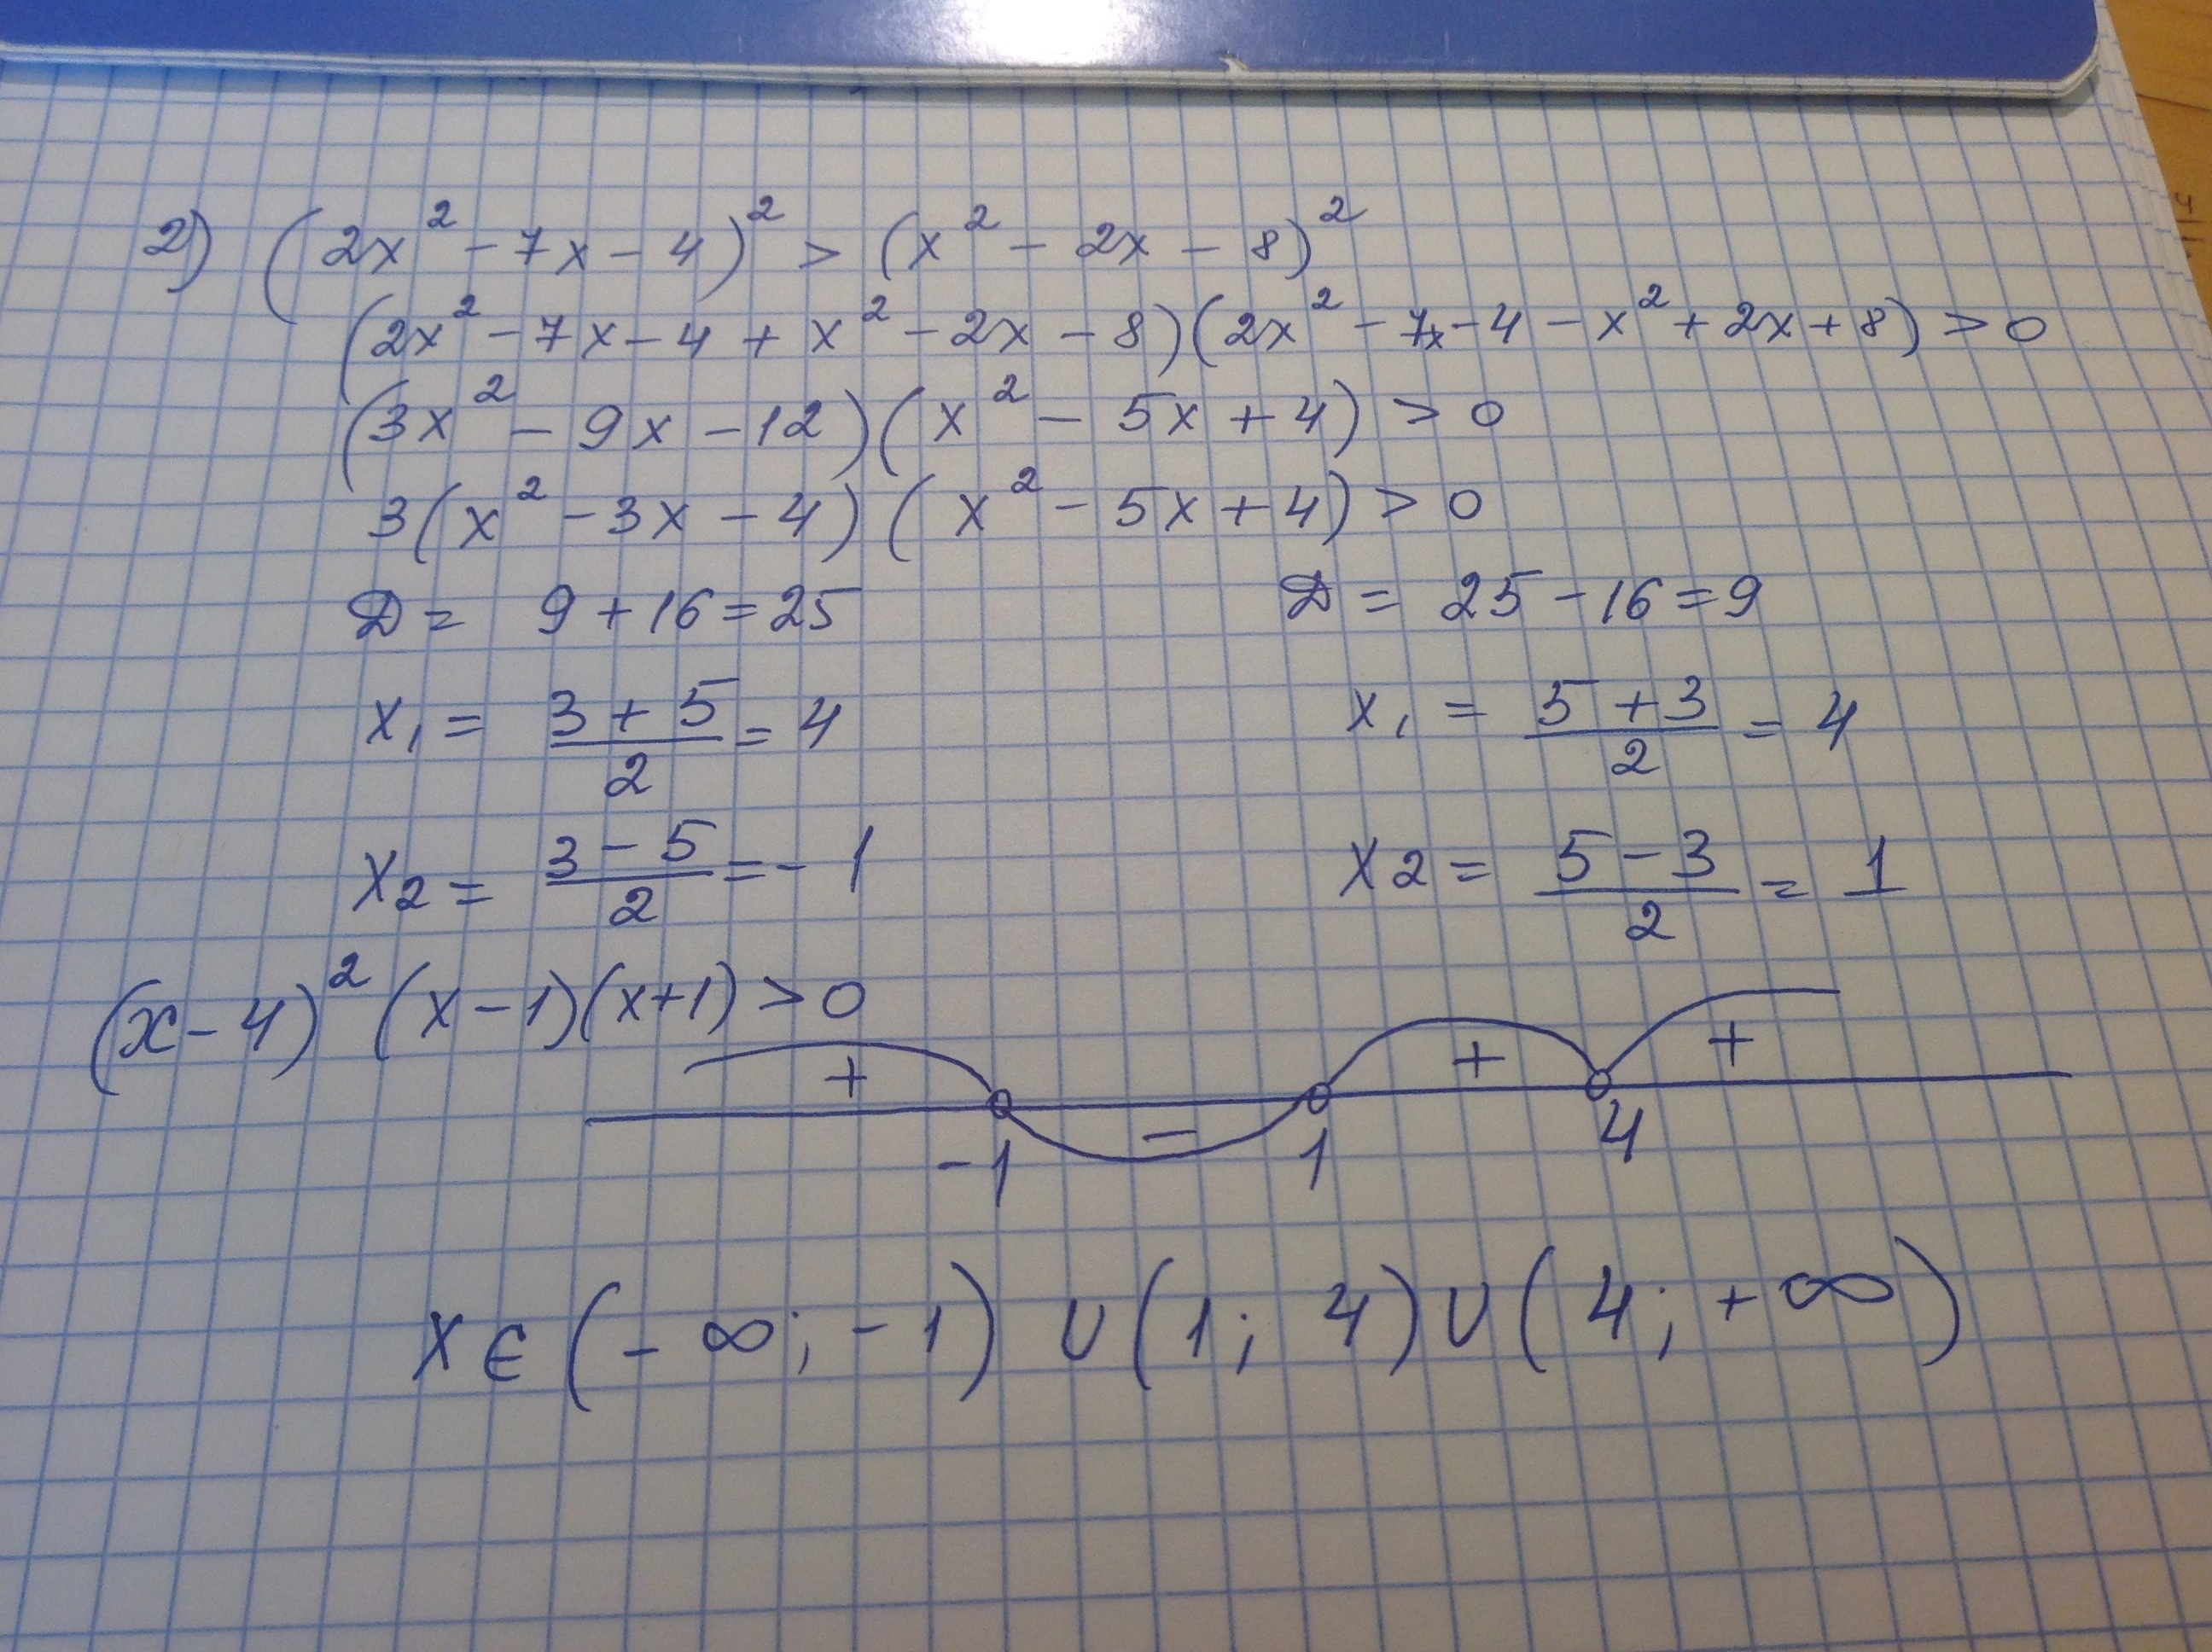 2) (2x² - 7x - 4)² > (x² - 2x - 8)²
(2x² - 7x - 4 + x² - 2x - 8)(2x² - 7x - 4 - x² + 2x + 8) > 0
(3x² - 9x - 12)(x² - 5x + 4) > 0
3(x² - 3x - 4)(x² - 5x + 4) > 0
D = 9 + 16 = 25 D = 25 - 16 = 9
x₁ = (3 + 5)/2 = 4 x₁ = (5 + 3)/2 = 4
x₂ = (3 - 5)/2 = -1 x₂ = (5 - 3)/2 = 1
(x - 4)² (x - 1)(x + 1) > 0
+ - + +
-1 1 4
x ∈ (-∞; -1) ∪ (1; 4) ∪ (4; +∞)